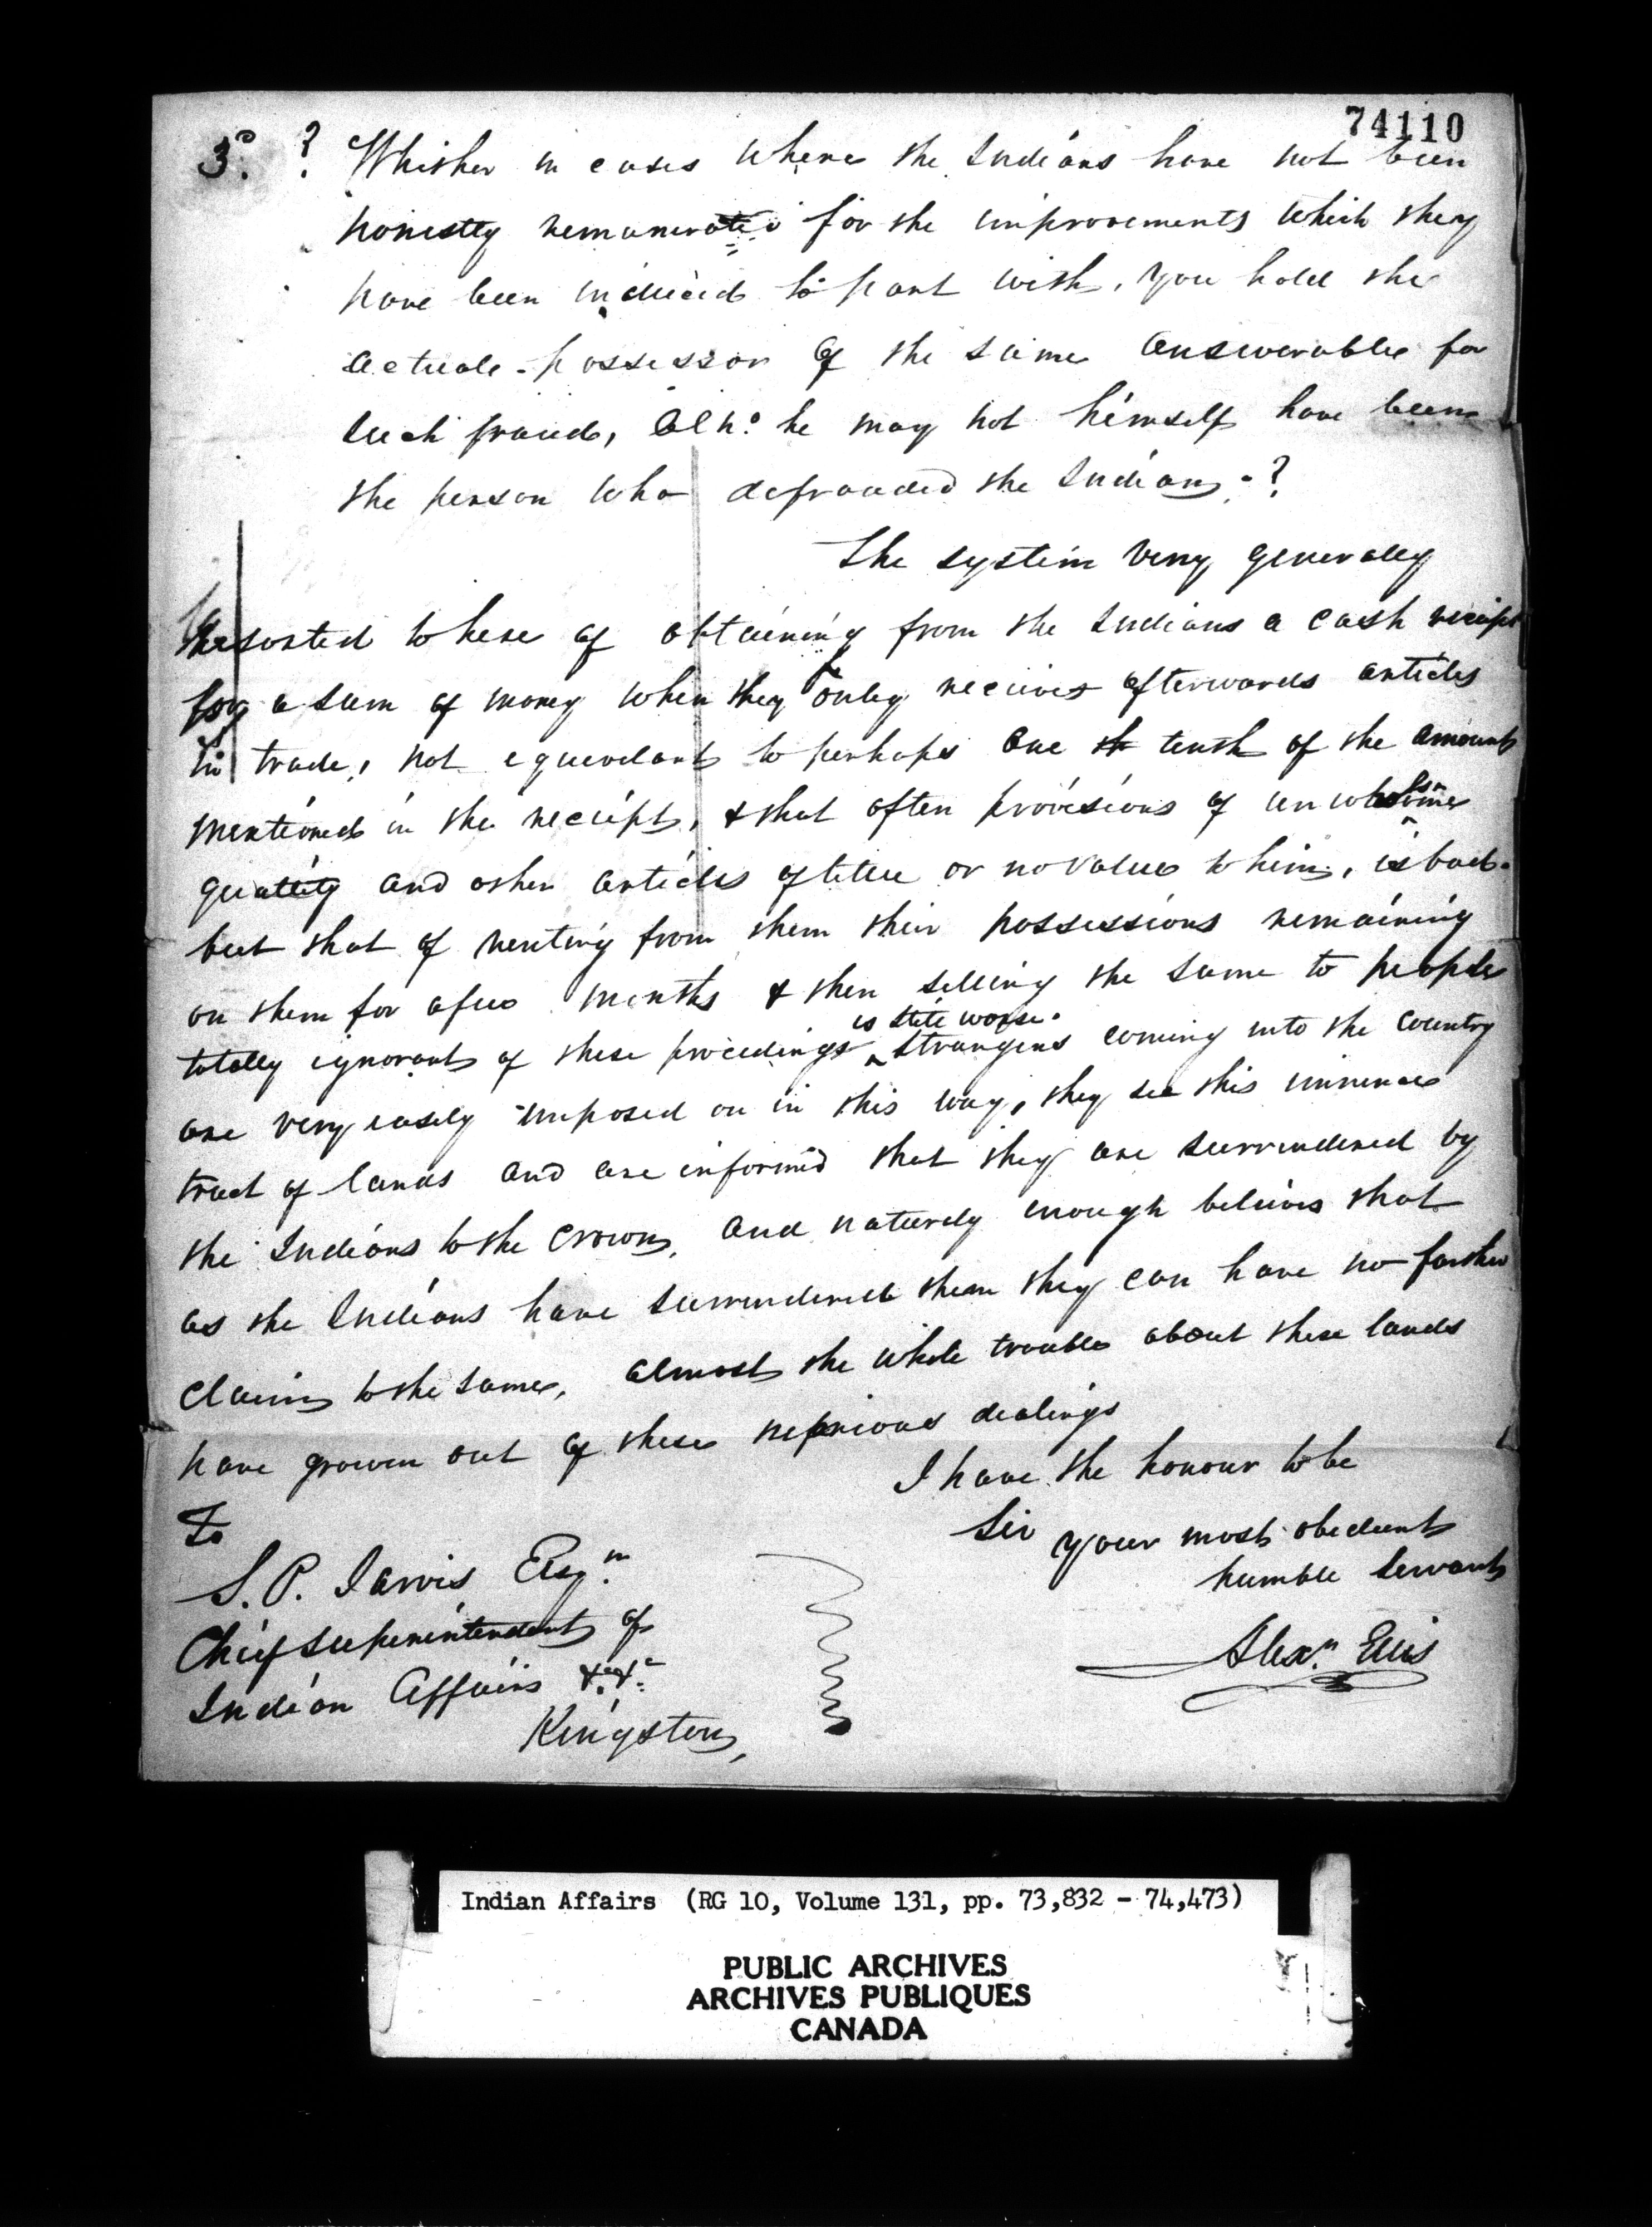 74110
3º ? Whither in cases where the Indians have not been
honestly remunerated for the improvements which they
have been induced to part with, you hold the
actuale possessor of the same answerable for
such fraud, Altho he may not himself have been
the person who defrauded the Indians - ?
The system very generally
resorted to here of obtaining from the Indians a cash receipt
for a sum of money when they only receives afterwards articles
in trade, not equevelant to perhaps one th tenth of the amount
mentioned in the reciept, & that often provisions of unwholsome
quality and other articles of little or no value to him, is bad -
but that of renting from them their possessions remaining
on them for a few months & then selling the same to people
totally ignorant of these procedings is still worse. Strangers coming into the country
are very easily imposed on in this way, they see this immence
tract of lands and are informed that they are surrendered by
the Indians to the Crown, and naturely enough believes that
as the Indians have surrendered them they can have no farther
claim to the same, almost the whole trouble about these lands
have growen out of these neferious dealings
I have the honour to be
Sir your most obedient
humble Servant
Alexr. Ellis
To
S. P. Jarvis Esqr.
Chief Superintendent of
Indian Affairs &c &c
Kingston,
Indian Affairs (RG 10, Volume 131, pp. 73,832 - 74,473)
PUBLIC ARCHIVES
ARCHIVES PUBLIQUES
CANADA